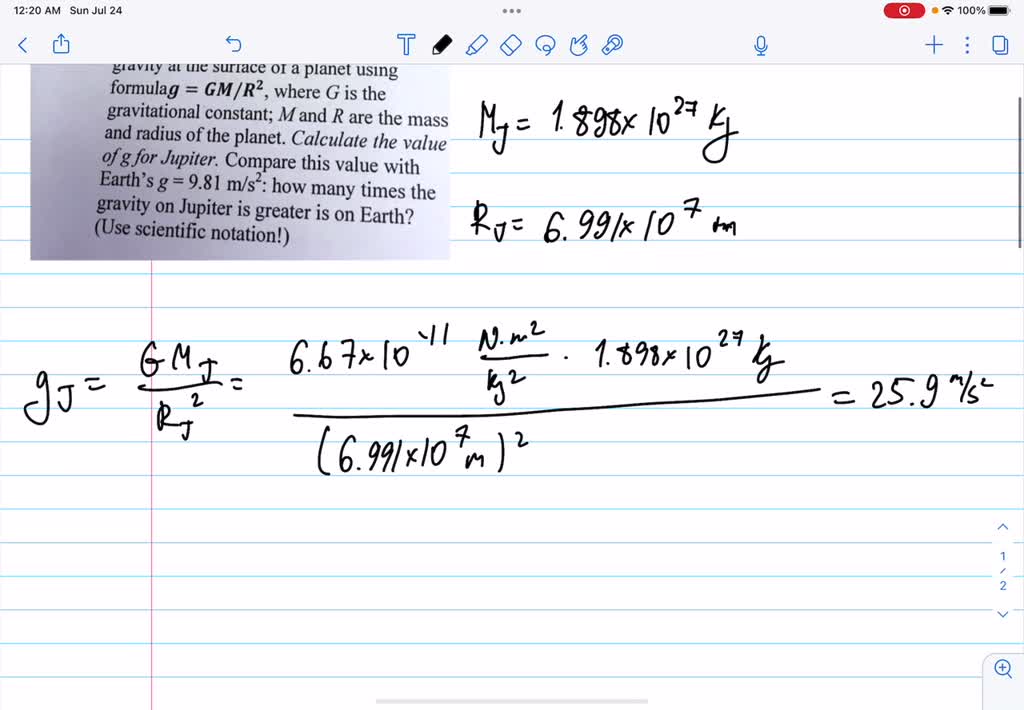 12:20 AM Sun Jul 24
100%
T
gravity at the surface of a planet using
formulag = GM/R², where G is the
gravitational constant; M and R are the mass
and radius of the planet. Calculate the value
of g for Jupiter. Compare this value with
Earth's g = 9.81 m/s²: how many times the
gravity on Jupiter is greater is on Earth?
(Use scientific notation!)
M_J = 1.898 × 10²⁷ kg
R_J = 6.991 × 10⁷ m
g_J = G M_J / R_J² = 6.67 × 10⁻¹¹ N·m²/kg² · 1.898 × 10²⁷ kg / (6.991 × 10⁷ m)² = 25.9 m/s²
1
/
2